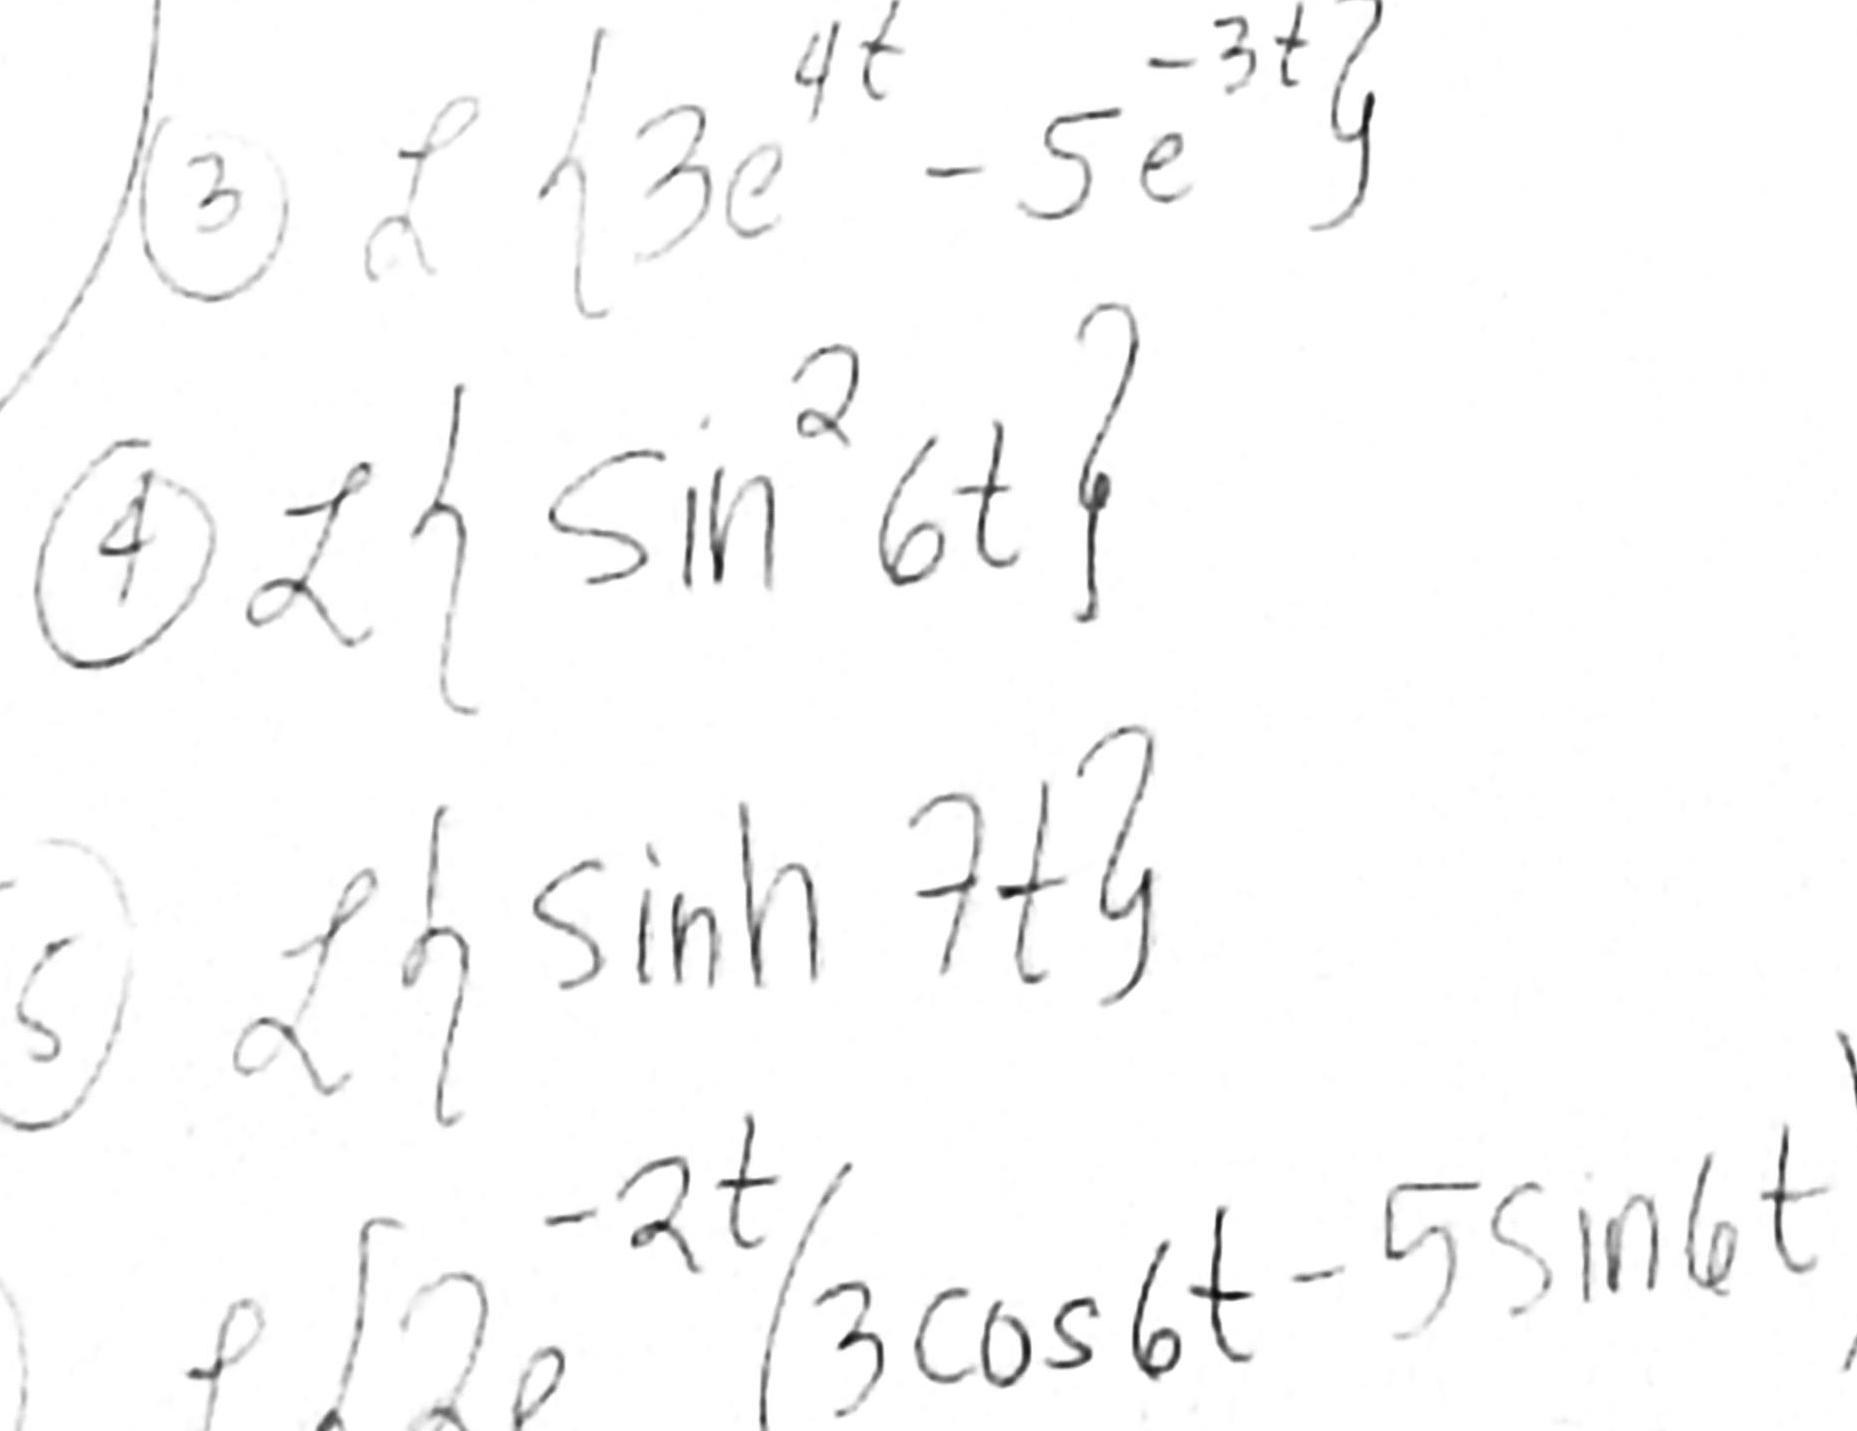 ③ ℒ{3e^{4t} - 5e^{-3t}}
④ ℒ{sin² 6t}
⑤ ℒ{sinh 7t}
ℒ{2e^{-2t}(3cos6t - 5sin6t)